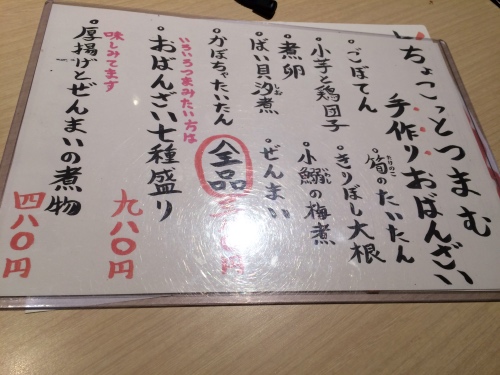 ちょこっとつまむ
手作りおばんざい
ごぼてん
筍のたいたん
たけのこ
小芋と鶏団子
きりぼし大根
煮卵
小鰯の梅煮
ばい貝汐煮
しお
ぜんまい
かぼちゃたいたん
全品
円
いろいろつまみたい方は
おばんざい七種盛り
九八〇円
味しみてます
厚揚げとぜんまいの煮物
四八〇円